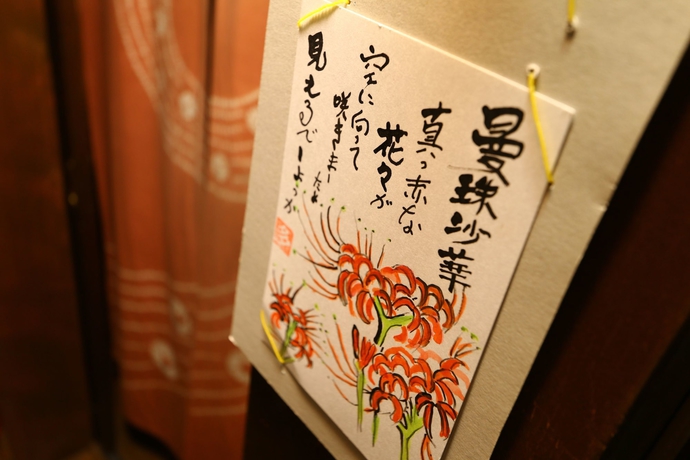 曼珠沙華
真っ赤な
花々が
空に向って
咲きましたよ
見もるでしょうか